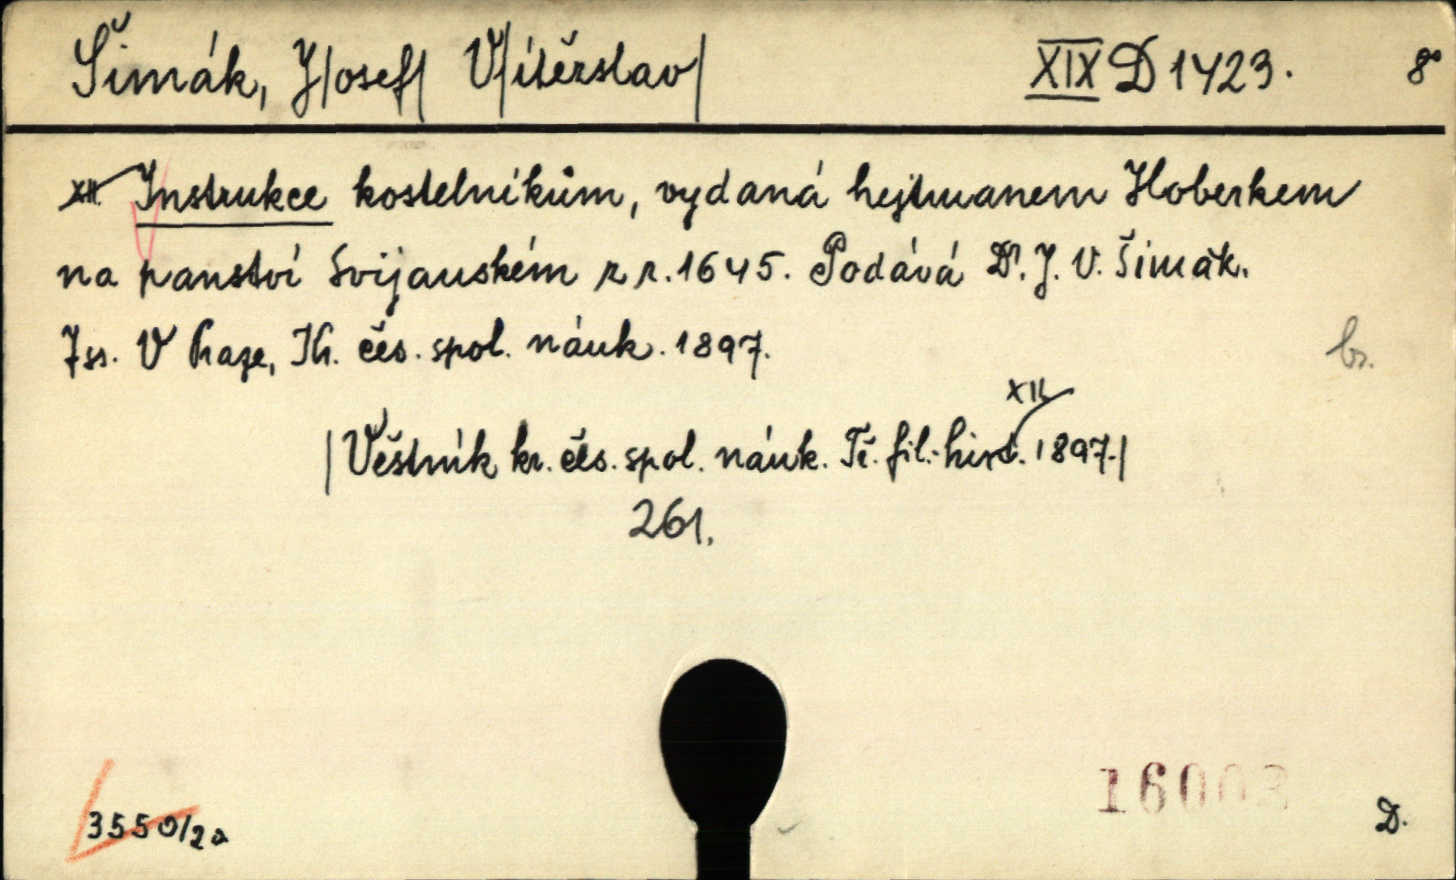 Šimák, J|osef| V|ítěrslav| XIX D 1423. 8°
XII. Instrukce kostelníkům, vydaná hejtmanem Hoberkem
na panství Svijanském z r. 1645. Podává Dr. J. V. Šimák.
7 ss. V Praze, Kr. čes. spol. náuk. 1897.
br.
XII
|Věstník kr. čes. spol. náuk. Tř. fil.-hist. 1897.|
261.
16003
3550/2a
D.